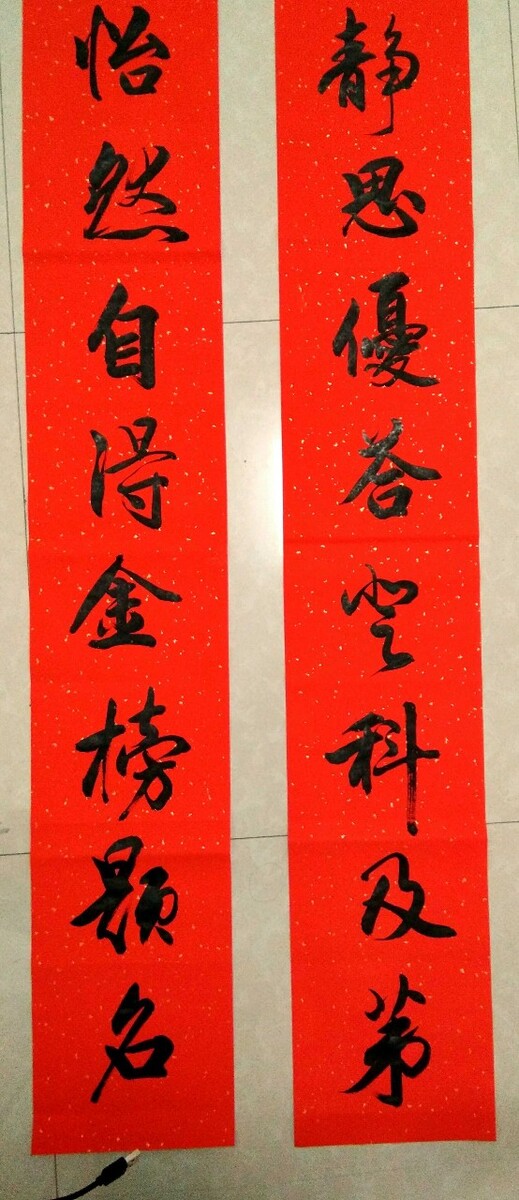 静思優答登科及第
怡然自得金榜题名